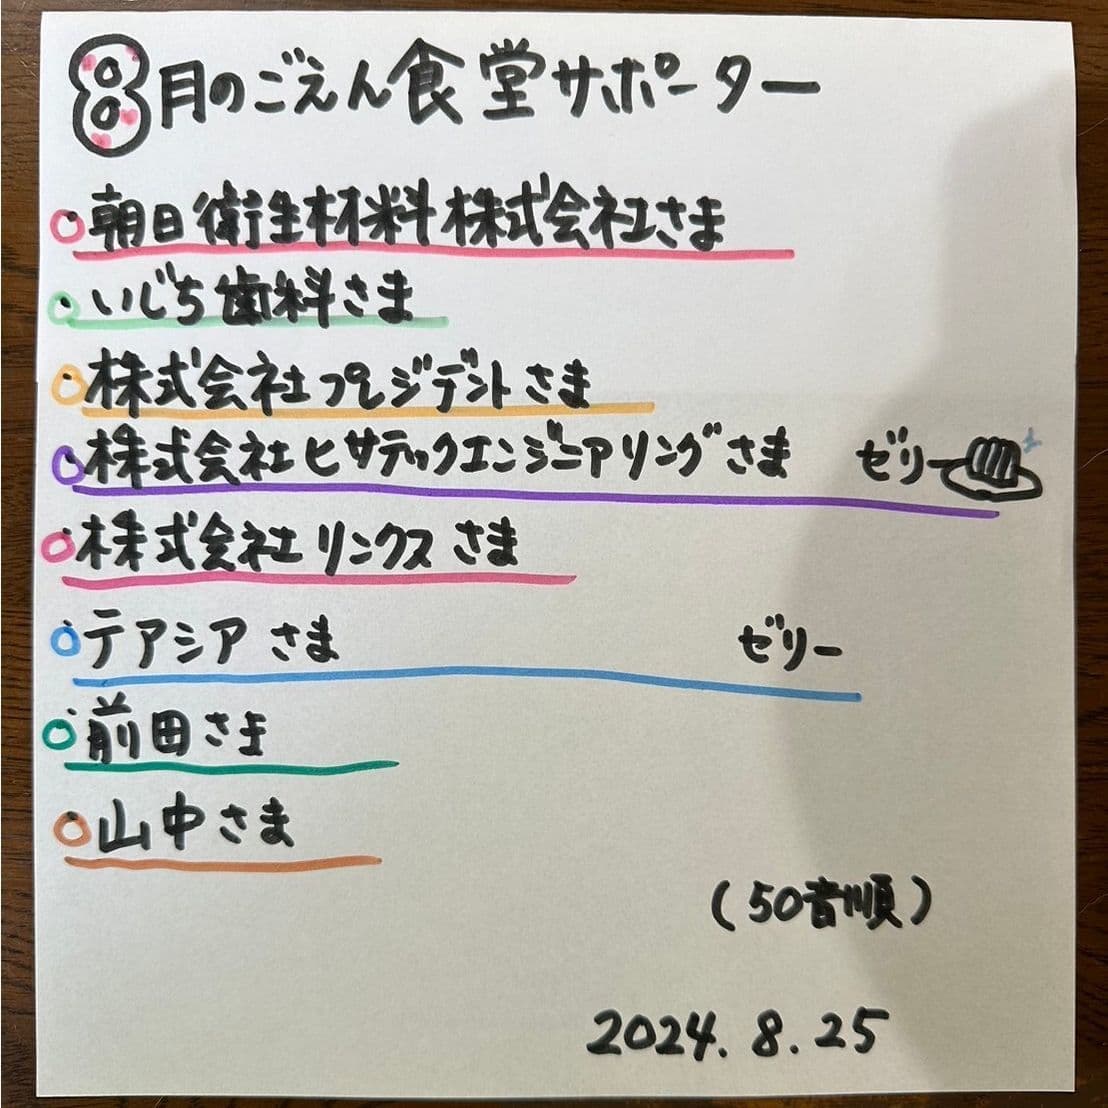 8月のごえん食堂サポーター
朝日衛生材料株式会社さま
いじち歯科さま
株式会社プレジデントさま
株式会社ヒサテックエンジニアリングさま ゼリー
株式会社リンクスさま
テアシアさま ゼリー
前田さま
山中さま
(50音順)
2024.8.25